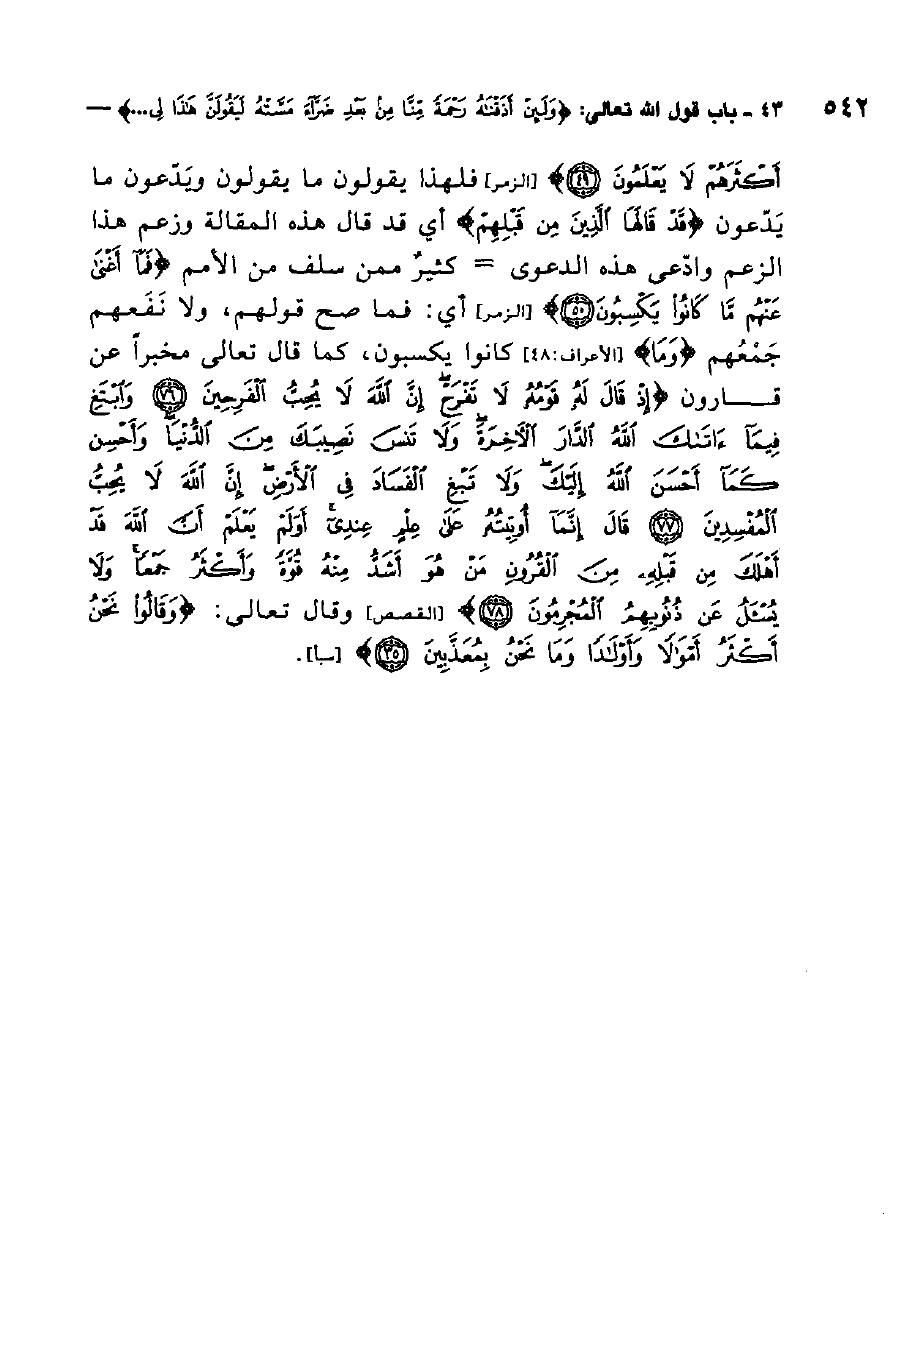 ٥٤٢ ٤٣ - باب قول الله تعالى: ﴿وَلَئِنْ أَذَقْنَٰهُ رَحْمَةً مِّنَّا مِنۢ بَعْدِ ضَرَّآءَ مَسَّتْهُ لَيَقُولَنَّ هَٰذَا لِى...﴾ —
أَكْثَرَهُمْ لَا يَعْلَمُونَ ﴿٤٩﴾﴾ [الزمر] فلهذا يقولون ما يقولون ويَدّعون ما
يَدّعون ﴿قَدْ قَالَهَا ٱلَّذِينَ مِن قَبْلِهِمْ﴾ أي قد قال هذه المقالة وزعم هذا
الزعم وادّعى هذه الدعوى = كثيرٌ ممن سلف من الأمم ﴿فَمَآ أَغْنَىٰ
عَنْهُم مَّا كَانُوا۟ يَكْسِبُونَ ﴿٥٠﴾﴾ [الزمر] أي: فما صح قولهم، ولا نَفَعهم
جَمْعُهم ﴿وَمَا﴾ [الأعراف:٤٨] كانوا يكسبون، كما قال تعالى مخبراً عن
قـــارون ﴿إِذْ قَالَ لَهُۥ قَوْمُهُۥ لَا تَفْرَحْ ۖ إِنَّ ٱللَّهَ لَا يُحِبُّ ٱلْفَرِحِينَ ﴿٧٦﴾ وَٱبْتَغِ
فِيمَآ ءَاتَىٰكَ ٱللَّهُ ٱلدَّارَ ٱلْـَٔاخِرَةَ ۖ وَلَا تَنسَ نَصِيبَكَ مِنَ ٱلدُّنْيَا ۖ وَأَحْسِن
كَمَآ أَحْسَنَ ٱللَّهُ إِلَيْكَ ۖ وَلَا تَبْغِ ٱلْفَسَادَ فِى ٱلْأَرْضِ ۖ إِنَّ ٱللَّهَ لَا يُحِبُّ
ٱلْمُفْسِدِينَ ﴿٧٧﴾ قَالَ إِنَّمَآ أُوتِيتُهُۥ عَلَىٰ عِلْمٍ عِندِىٓ ۚ أَوَلَمْ يَعْلَمْ أَنَّ ٱللَّهَ قَدْ
أَهْلَكَ مِن قَبْلِهِۦ مِنَ ٱلْقُرُونِ مَنْ هُوَ أَشَدُّ مِنْهُ قُوَّةً وَأَكْثَرُ جَمْعًا ۚ وَلَا
يُسْـَٔلُ عَن ذُنُوبِهِمُ ٱلْمُجْرِمُونَ ﴿٧٨﴾﴾ [القصص] وقال تعالى: ﴿وَقَالُوا۟ نَحْنُ
أَكْثَرُ أَمْوَٰلًا وَأَوْلَٰدًا وَمَا نَحْنُ بِمُعَذَّبِينَ ﴿٣٥﴾﴾ [سبأ].